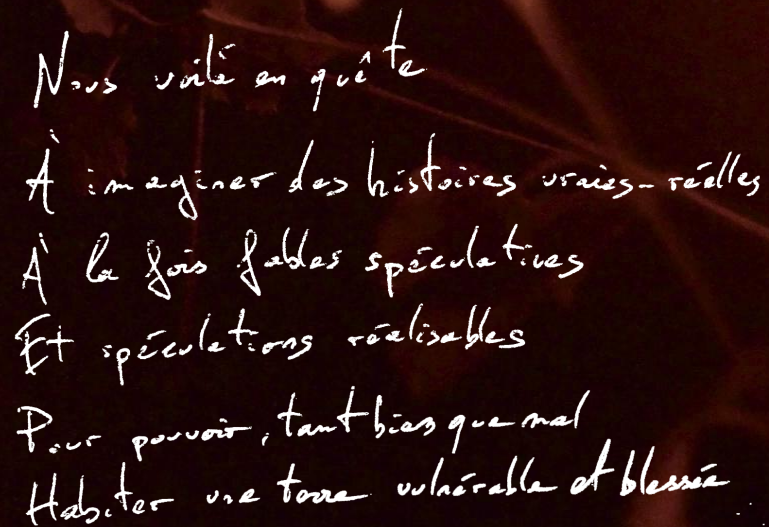 Nous voilà en quête
À imaginer des histoires vraies-réelles
À la fois fables spéculatives
Et spéculations réalisables
Pour pouvoir, tant bien que mal
Habiter une terre vulnérable et blessée